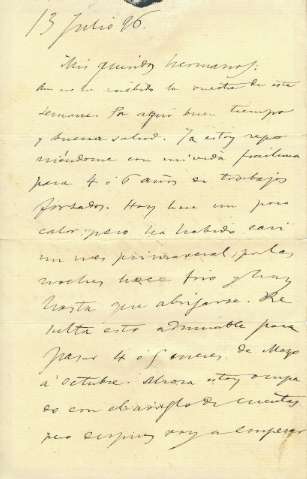 13 Julio 96.
Mis queridos hermanos:
Aun no he recibido la vuestra de esta
semana. Por aquí buen tiempo
y buena salud. Ya estoy repo
niéndome con mi vida
para 4 ó 6 años de trabajos
forzados. Hoy hace un poco
calor, pero ha habido casi
un mes primaveral, por las
noches hace frio y hay
hasta que abrigarse. Re
sulta esto admirable para
pasar 4 ó 5 meses de Mayo
á Octubre. Ahora estoy ocupa
do con el arreglo de cuentas
pero despues voy a empezar